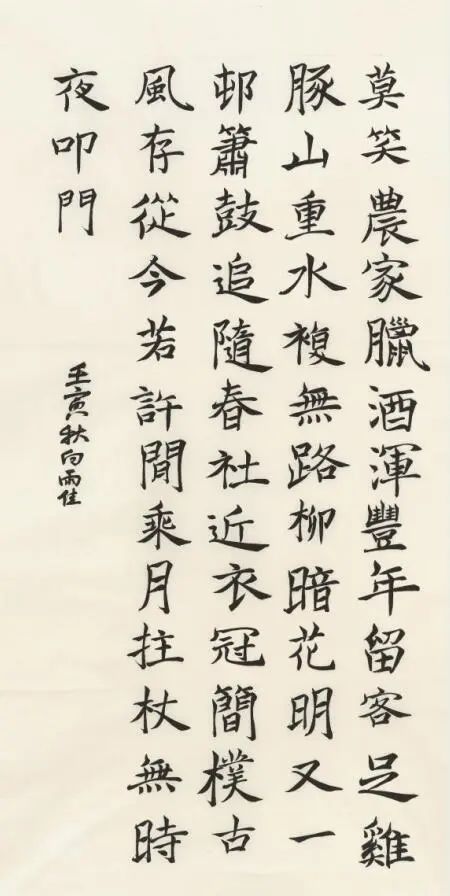 莫笑農家臘酒渾豐年留客足雞
豚山重水複無路柳暗花明又一
邨簫鼓追隨春社近衣冠簡樸古
風存從今若許閒乘月拄杖無時
夜叩門
壬寅秋向雨佳